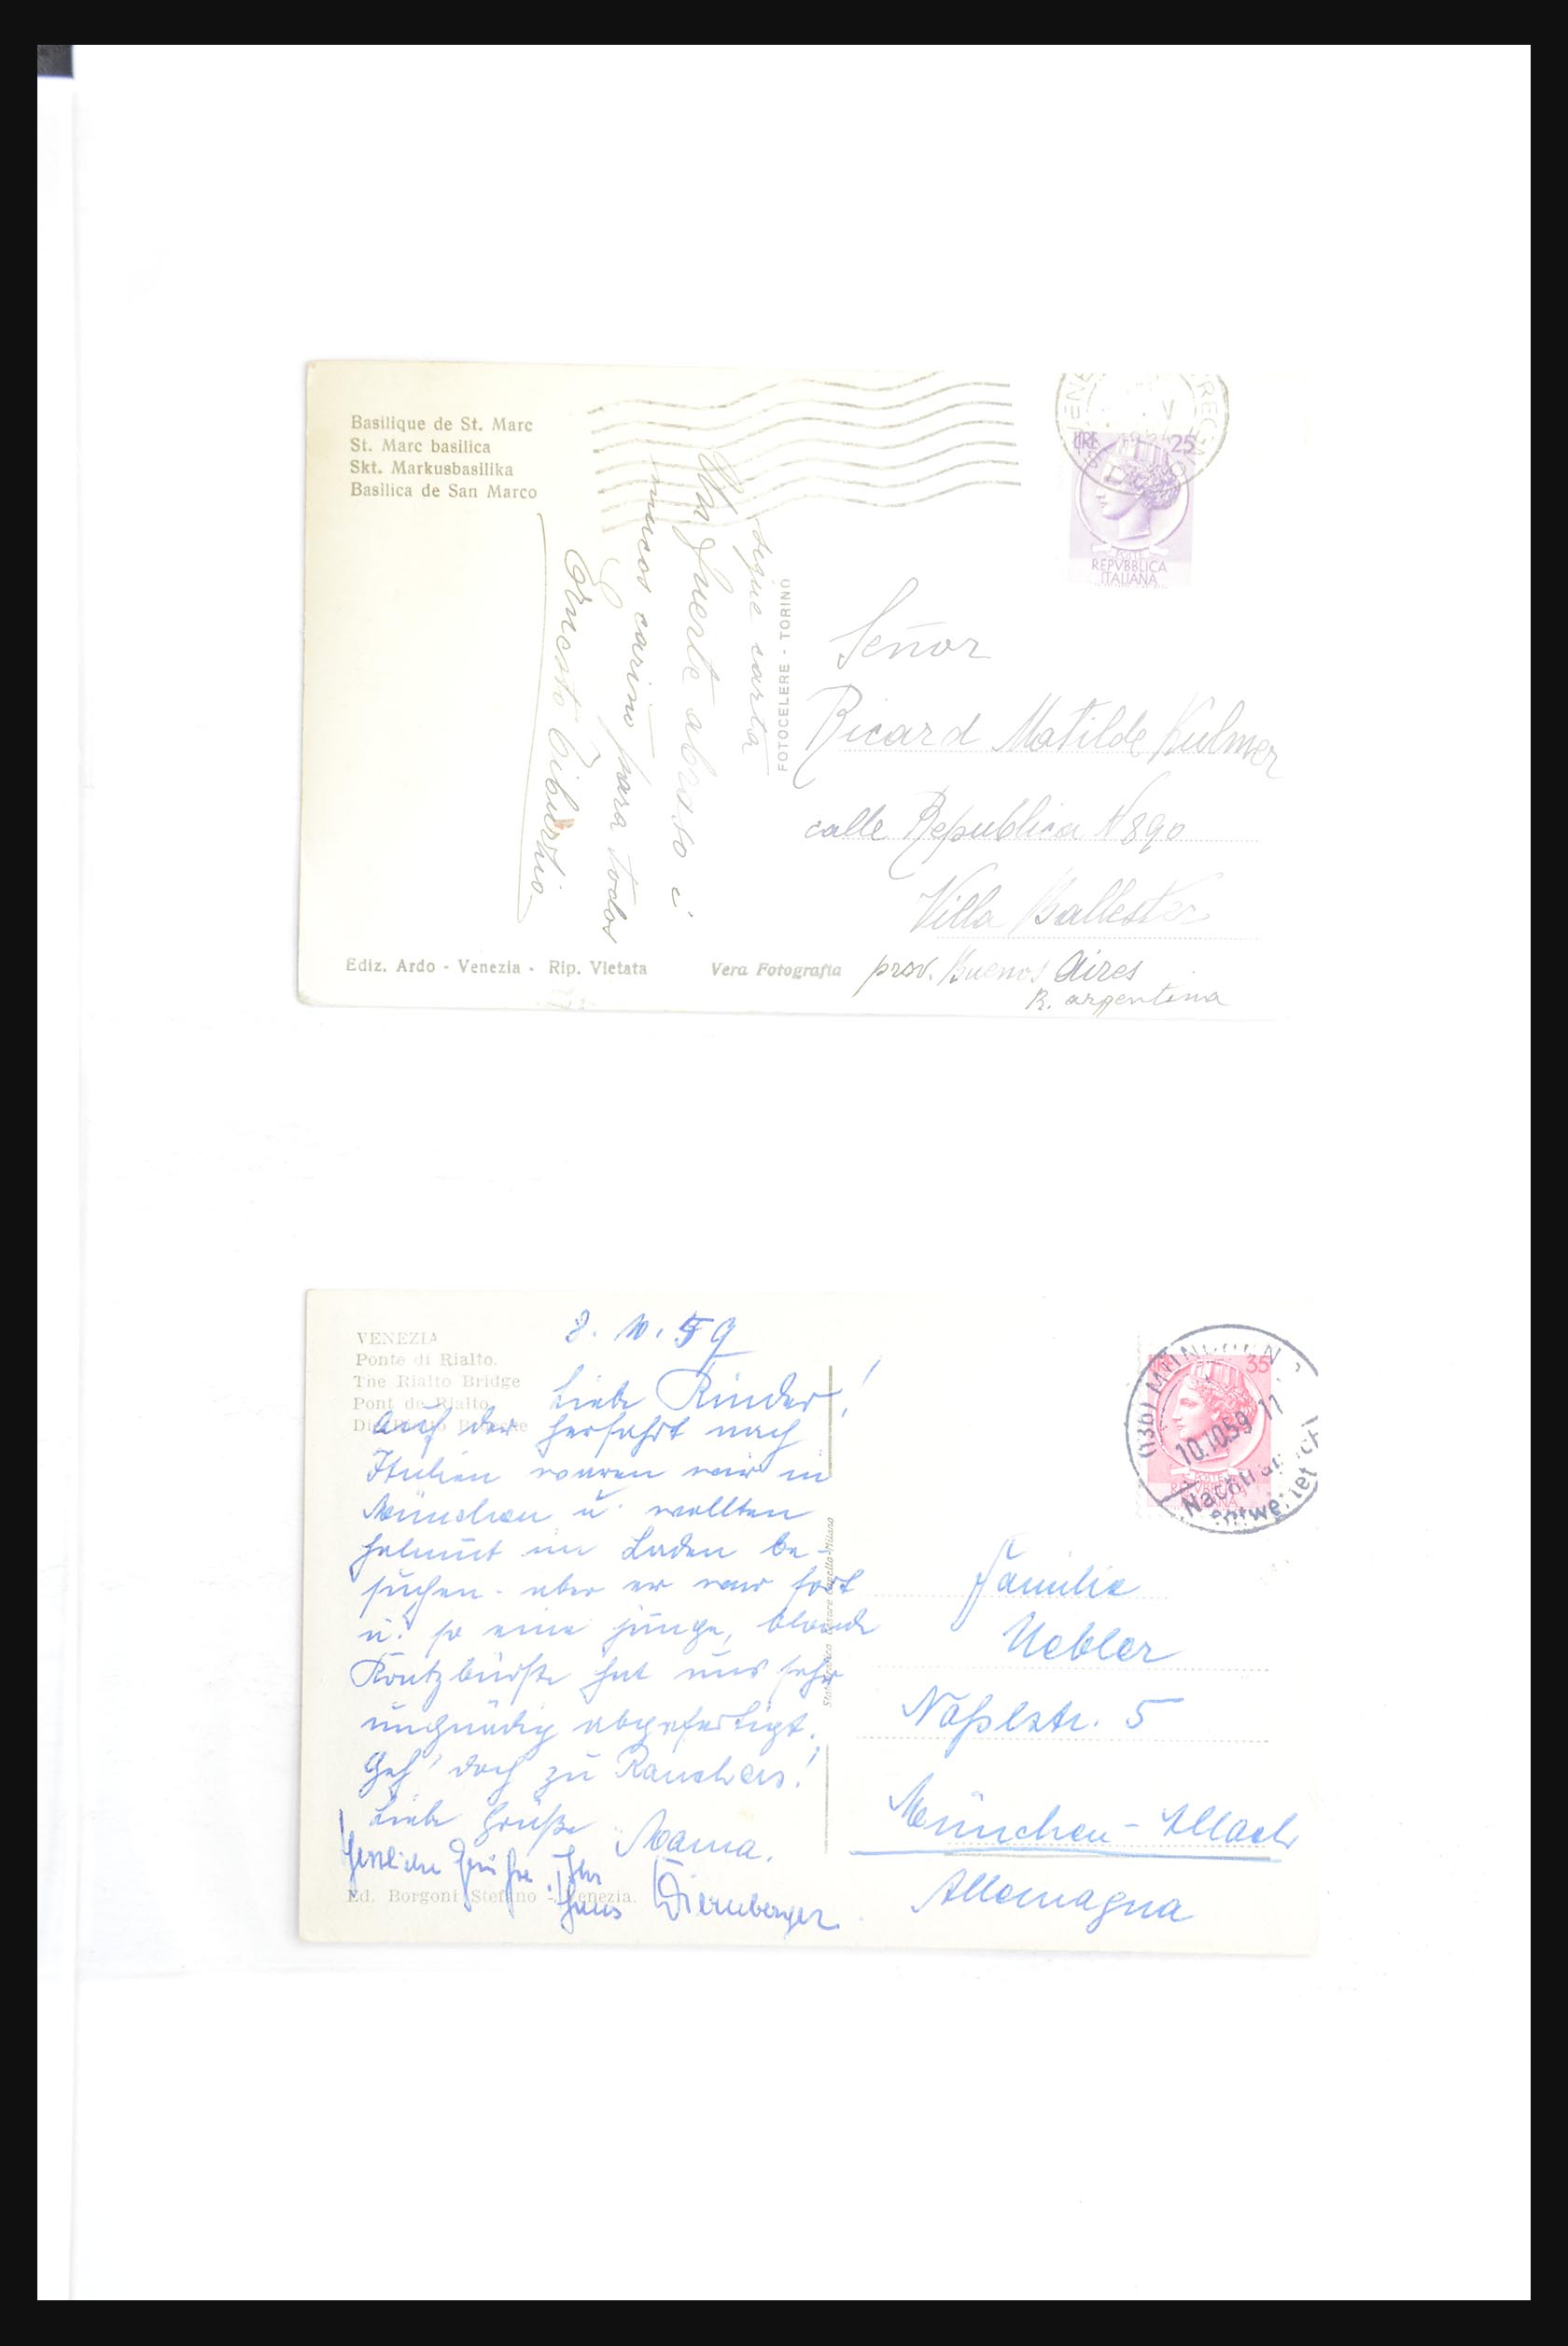 Basilique de St. Marc
St. Marc basilica
Skt. Markusbasilika
Basilica de San Marco
segue carta
Un fuerte abraso i
mucos carino para todos
Ernesto Tiburzio
FOTOCELERE - TORINO
LIRE 25
POSTE
REPVBBLICA
ITALIANA
Señor
Ricard Matilde Kulmer
calle Republica N 890
Villa Ballester
prov. Buenos Aires
R. argentina
Ediz. Ardo - Venezia - Rip. Vietata
Vera Fotografia
VENEZIA
Ponte di Rialto.
The Rialto Bridge
Pont de Rialto
8. 10. 59
Liebe Kinder!
Auf der Herfahrt nach
Italien waren wir in
München u. wollten
Helmut im Laden be-
suchen - aber er war fort
u. so eine junge, blonde
Kratzbürste hat uns sehr
ungnädig abgefertigt.
Geh' doch zu Rauchers!
Liebe Grüße Mama.
Herzliche Grüße Ihr
Hans Diernberger
Ed. Borgoni Stefano - Venezia.
35
(13b) MÜNCHEN
10.10.59 11
Nachträglich
entwertet
Familie
Uebler
Naßlstr. 5
München-Allach
Allemagna